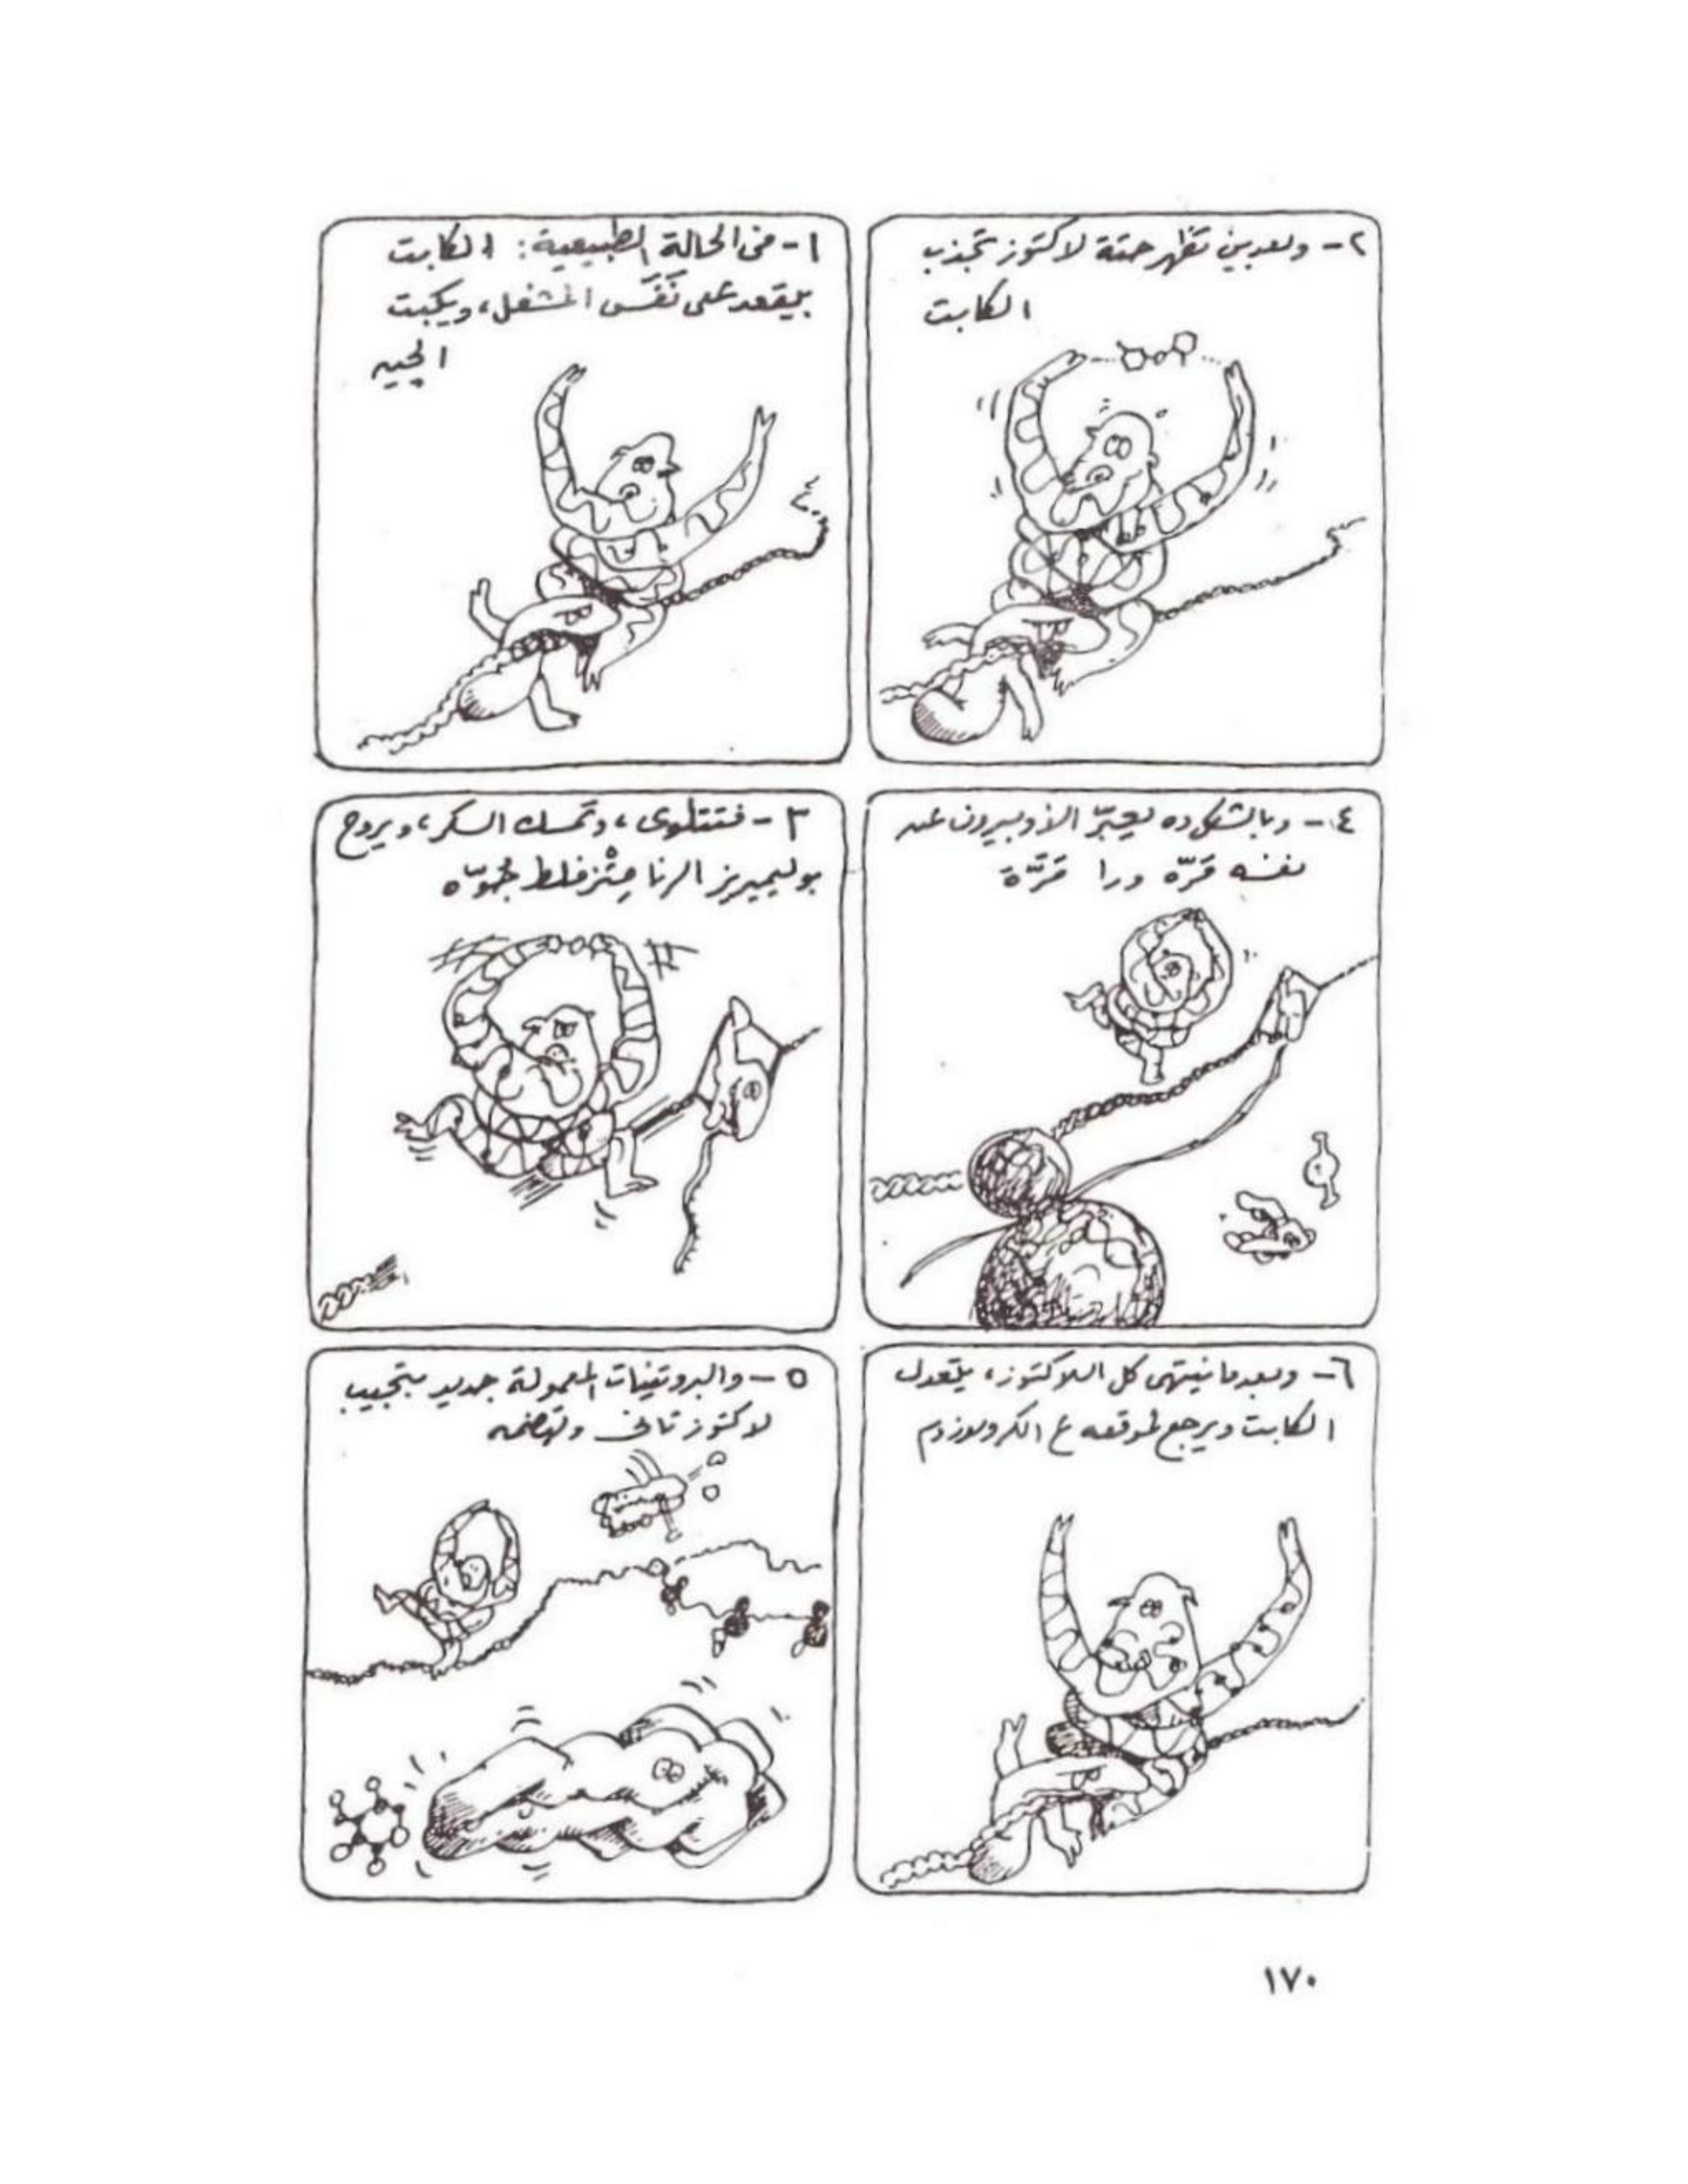 ١- فى الحالة الطبيعية: الكابت
بيقعد على نَفَس المشغل، ويكبت
الچين
٢- وبعدين تظهر حتة لاكتوز تجذب
الكابت
٣- فتتلوى، وتمسك السكر، ويروح
بوليميريز الرنا مِتْزفلط جُوّاه
٤- وبالشكل ده يعبّر الأوبيرون عن
نفسه مَرّة ورا مَرّة
٥- والبروتينات المعمولة جديد بتجيب
لاكتوز تانى وتهضمه
٦- وبعدما ينتهى كل اللاكتوز، يتعدل
الكابت ويرجع لموقعه ع الكروموزوم
١٧٠